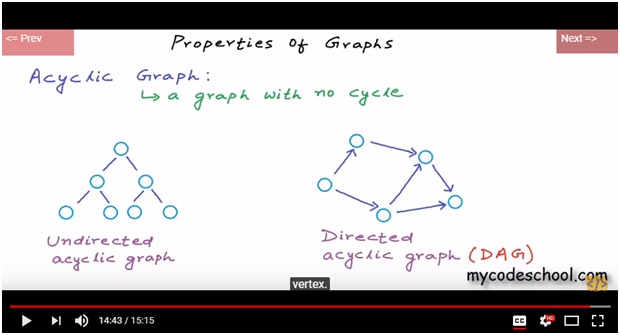 <= Prev
Properties of Graphs
Next =>
Acyclic Graph:
↳ a graph with no cycle
Undirected
acyclic graph
Directed
acyclic graph (DAG)
mycodeschool.com
</>
vertex.
14:43 / 15:15
CC
HD